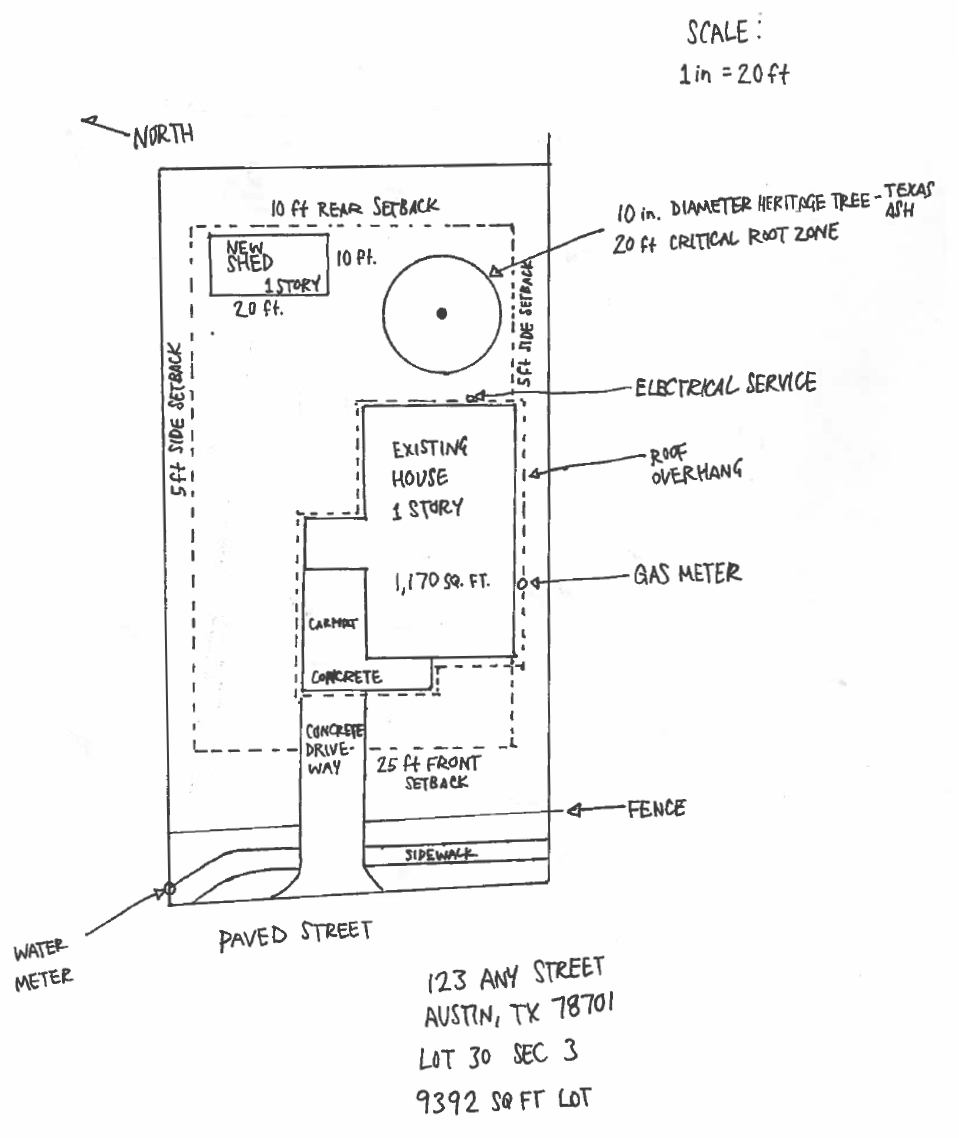 SCALE:
1 in = 20 ft
NORTH
10 ft REAR SETBACK
10 in. DIAMETER HERITAGE TREE - TEXAS ASH
20 ft CRITICAL ROOT ZONE
NEW
SHED
1 STORY
10 FT.
20 ft.
5ft SIDE SETBACK
5ft SIDE SETBACK
ELECTRICAL SERVICE
EXISTING
HOUSE
1 STORY
ROOF
OVERHANG
1,170 SQ. FT.
GAS METER
CARPORT
CONCRETE
CONCRETE
DRIVE-
WAY
25 ft FRONT
SETBACK
FENCE
SIDEWALK
WATER
METER
PAVED STREET
123 ANY STREET
AUSTIN, TX 78701
LOT 30 SEC 3
9392 SQ FT LOT